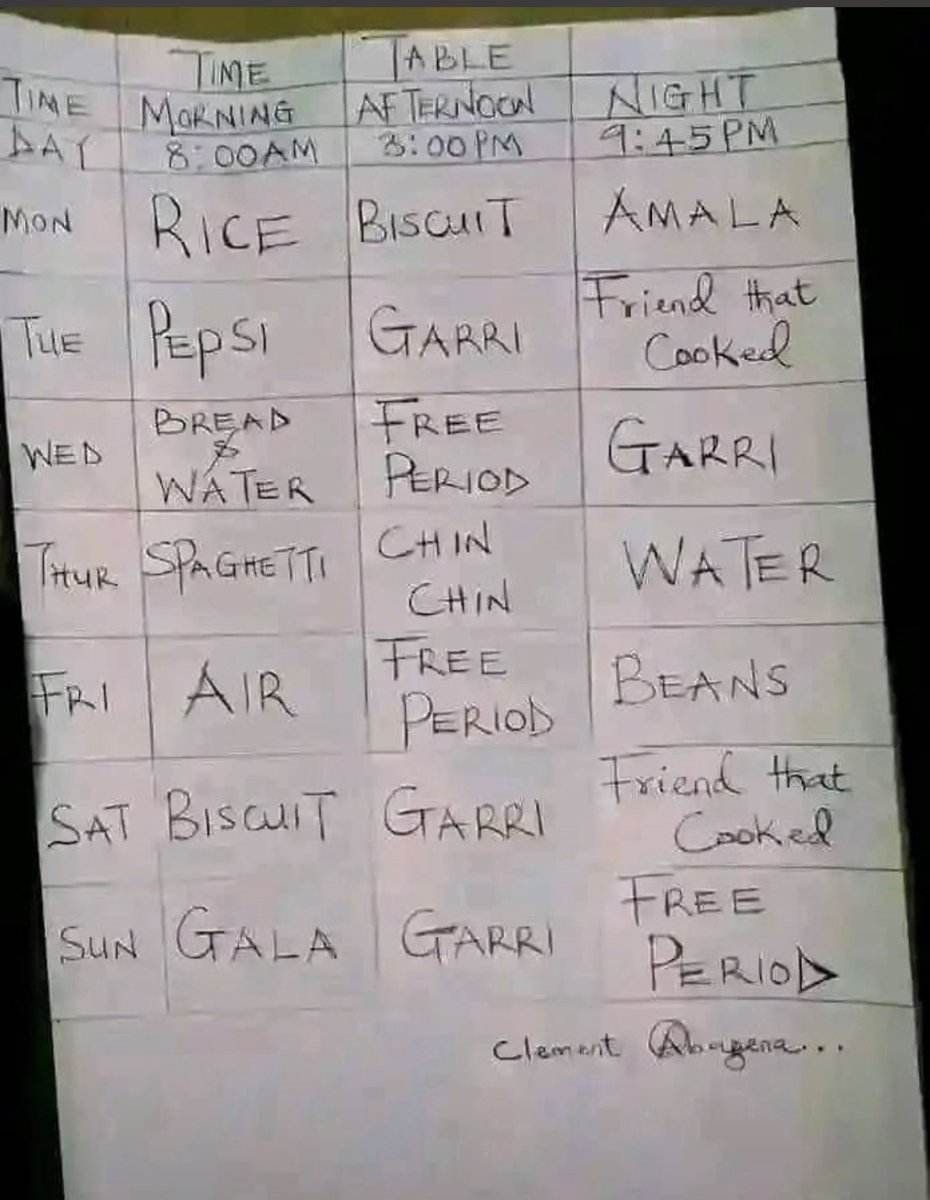 TIME TABLE
TIME MORNING AFTERNOON NIGHT
DAY 8:00AM 3:00PM 9:45PM
MON RICE BISCUIT AMALA
TUE PEPSI GARRI Friend that Cooked
WED BREAD & WATER FREE PERIOD GARRI
THUR SPAGHETTI CHIN CHIN WATER
FRI AIR FREE PERIOD BEANS
SAT BISCUIT GARRI Friend that Cooked
SUN GALA GARRI FREE PERIOD
Clement Abagena...